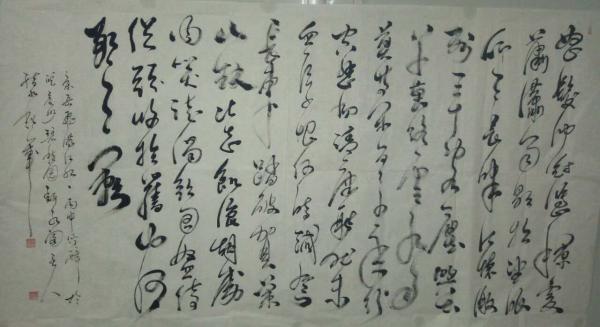 怒髮冲冠憑欄處
瀟瀟雨歇抬望眼
仰天長嘯壯懷激
烈三十功名塵與土
八千里路雲和月
莫等閒白了少年頭
空悲切靖康恥猶未
雪臣子恨何時滅駕
長車踏破賀蘭
山缺壯志飢餐胡虜
肉笑談渴飲匈奴待
從頭收拾舊山河
朝天闕
宋岳飛滿江紅丙申於